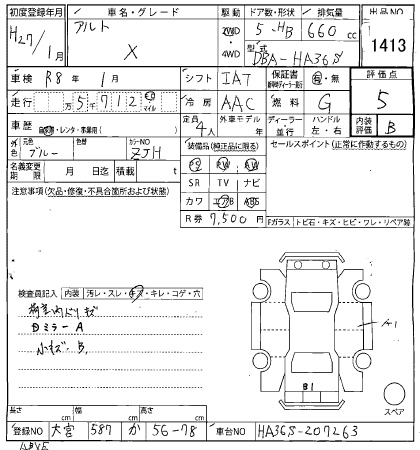 初度登録年月 車名・グレード 駆動 ドア数・形状 排気量 出品NO
H27/1月 アルト X 2WD・4WD 5-HB 660cc 1413
型式 DBA-HA36S
車検 R8年1月 シフト IAT 保証書 有・無 評価点
走行 万5千712 km マイル 冷房 AAC 燃料 G 5
車歴 自家用・レンタ・事業用( ) 定員 4人 外車モデル 年 ディーラー 並行 ハンドル 左・右 内装評価 B
外色 元色 ブルー 色替 カラーNO ZJH 装備品(純正品に限る) セールスポイント(正常に作動するもの)
名義変更期限 月 日迄 積載 t PS PW AW
注意事項(欠品・修復・不具合箇所および状態) SR TV ナビ
カワ エアB ABS
R券 7,500円 Fガラス トビ石・キズ・ヒビ・ワレ・リペア跡
検査員記入 内装 汚レ・スレ・キズ・キレ・コゲ・穴
荷室内ドリキズ
Dミラー A
小キズ・B,
A1
B1
スペア
長さ cm 幅 cm 高さ cm
登録NO 大宮 587 か 56-78 車台NO HA36S-207263